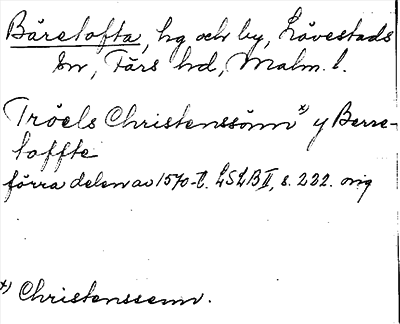 Bärelofta, hg och by, Lövestads
sn, Färs hd, Malm. l.
Tröels Christenssönn x) y Berre-
loffte
förra delen av 1570-t. LSLB II, s. 222. orig
x) Christenssenn.